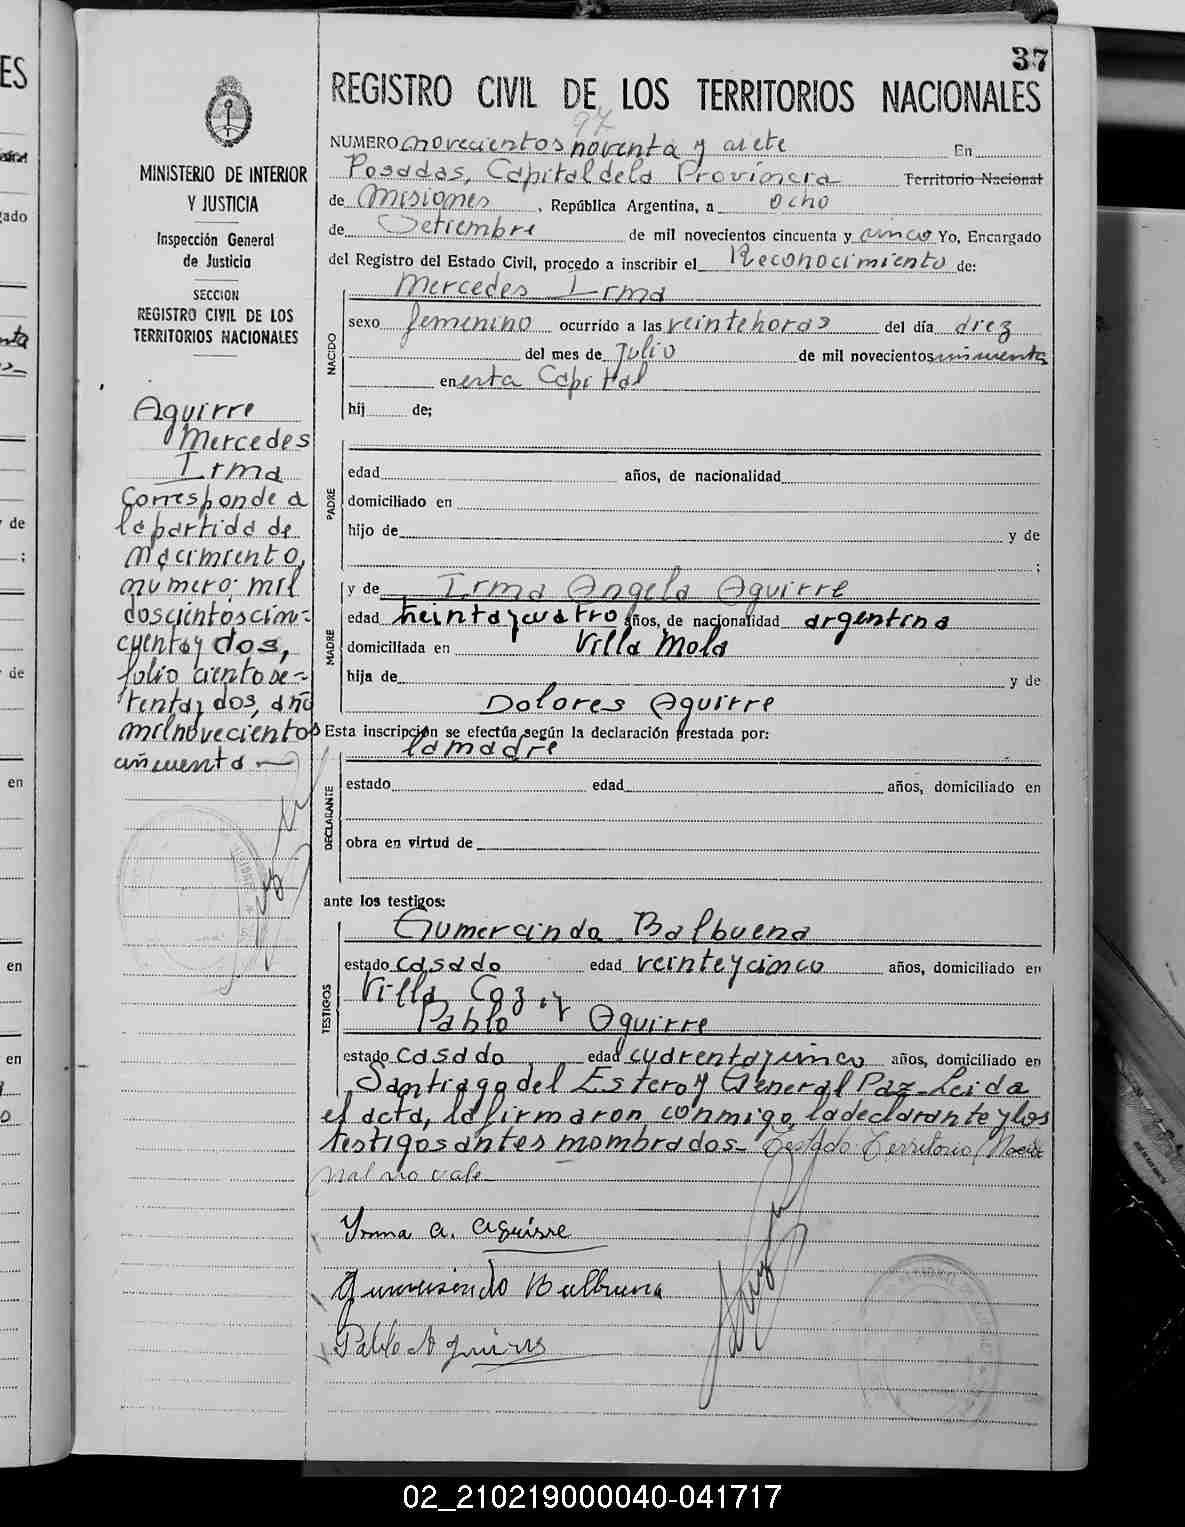 37
REGISTRO CIVIL DE LOS TERRITORIOS NACIONALES
97
NUMERO novecientos noventa y siete En
Posadas, Capital de la Provincia Territorio Nacional
de Misiones, República Argentina, a ocho
de Setiembre de mil novecientos cincuenta y cinco Yo, Encargado
del Registro del Estado Civil, procedo a inscribir el Reconocimiento de:
NACIDO
Mercedes Irma
sexo femenino ocurrido a las veinte horas del día diez
del mes de Julio de mil novecientos cincuenta
en esta Capital
hij de;
PADRE
edad años, de nacionalidad
domiciliado en
hijo de y de
;
MADRE
y de Irma Angela Aguirre
edad treinta y cuatro años, de nacionalidad argentina
domiciliada en Villa Mola
hija de y de
Dolores Aguirre
Esta inscripción se efectúa según la declaración prestada por:
DECLARANTE
la madre
estado edad años, domiciliado en
obra en virtud de
ante los testigos:
TESTIGOS
Gumercindo Balbuena
estado casado edad veinte y cinco años, domiciliado en
Villa y
Pablo Aguirre
estado casado edad cuarenta y cinco años, domiciliado en
Santiago del Estero y General Paz - Leida
el acta, la firmaron conmigo, la declarante y los
testigos antes mombrados - Testado: Territorio Nacio
nal no vale
Yrma A. Aguirre
Gumersindo Balbuena
Pablo Aguirre
MINISTERIO DE INTERIOR
Y JUSTICIA
Inspección General
de Justicia
SECCION
REGISTRO CIVIL DE LOS
TERRITORIOS NACIONALES
Aguirre
Mercedes
Irma
Corresponde a
la partida de
nacimiento,
numero: mil
doscientos cin-
cuenta y dos,
folio ciento se-
tenta y dos, año
mil novecientos
cincuenta
ES
gado
y de
;
de
en
en
en
02_210219000040-041717